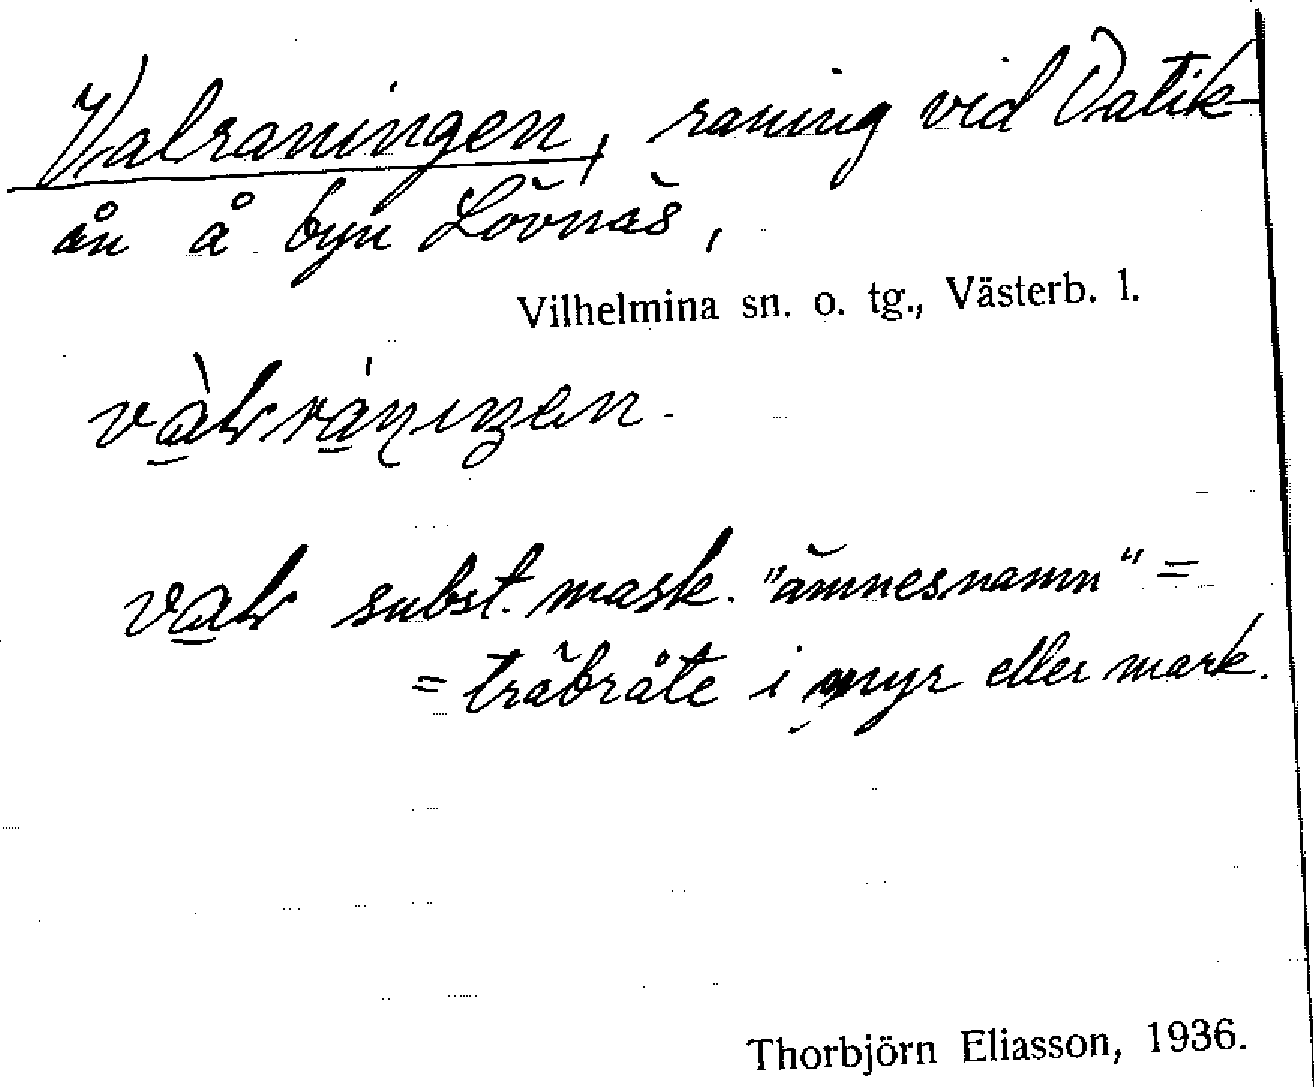 Valraningen, raning vid Vatik-
ån å byn Lövnäs,
Vilhelmina sn. o. tg., Västerb. l.
subst. mask. "ämnesnamn" =
= träbråte i myr eller mark.
Thorbjörn Eliasson, 1936.